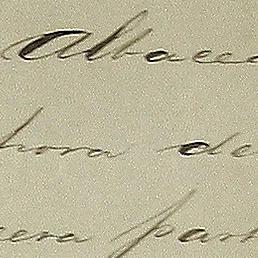 Albacea
hora de
cera part